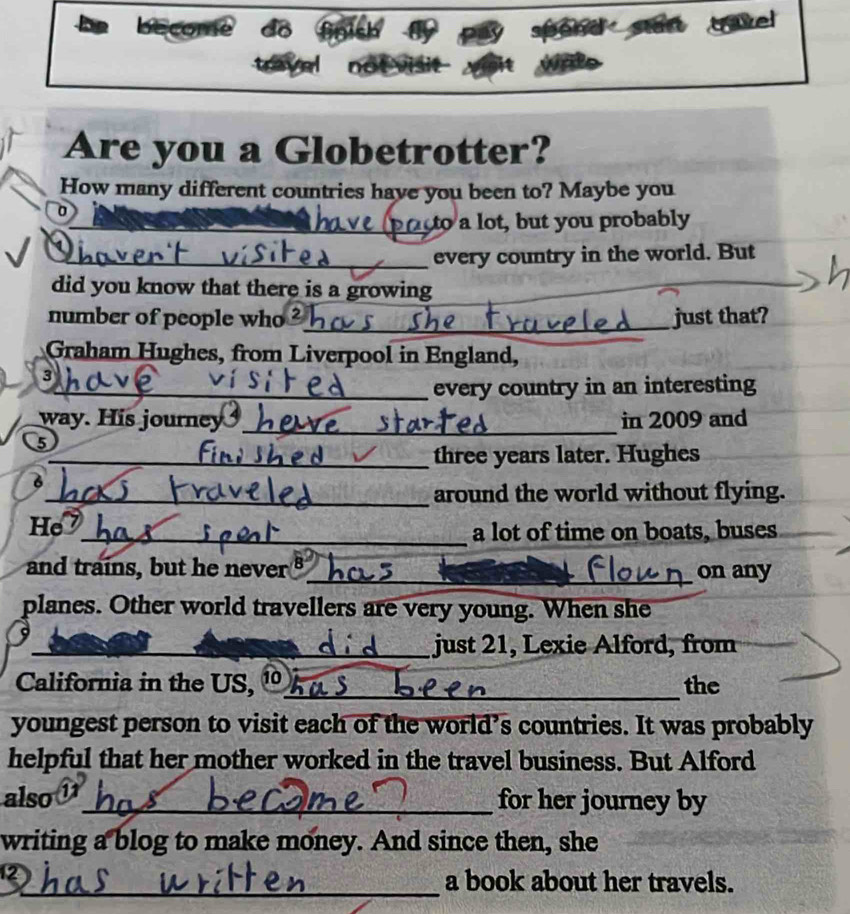 be become do finish fly pay spend start travel
travel not visit visit write
Are you a Globetrotter?
How many different countries have you been to? Maybe you
0 have pay to a lot, but you probably
1 haven't visited every country in the world. But
did you know that there is a growing
number of people who 2 has she traveled just that?
Graham Hughes, from Liverpool in England,
3 have visited every country in an interesting
way. His journey 4 have started in 2009 and
5 finished three years later. Hughes
6 has traveled around the world without flying.
He 7 has spent a lot of time on boats, buses
and trains, but he never 8 has flown on any
planes. Other world travellers are very young. When she
9 did just 21, Lexie Alford, from
California in the US, 10 has been the
youngest person to visit each of the world's countries. It was probably
helpful that her mother worked in the travel business. But Alford
also 11 has become ? for her journey by
writing a blog to make money. And since then, she
12 has written a book about her travels.